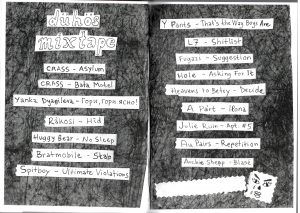 duhös
mixtape
CRASS - Asylum
CRASS - Bata Motel
Yanka Dyagileva - Гори, Гори Ясно!
Rákosi - Híd
Huggy Bear - No Sleep
Bratmobile - Stab
Spitboy - Ultimate Violations
Y Pants - That's the Way Boys Are
L7 - Shitlist
Fugazi - Suggestion
Hole - Asking For It
Heavens to Betsy - Decide
A Párt - Ilona
Julie Ruin - Apt. #5
Au Pairs - Repetition
Archie Shepp - Blasé